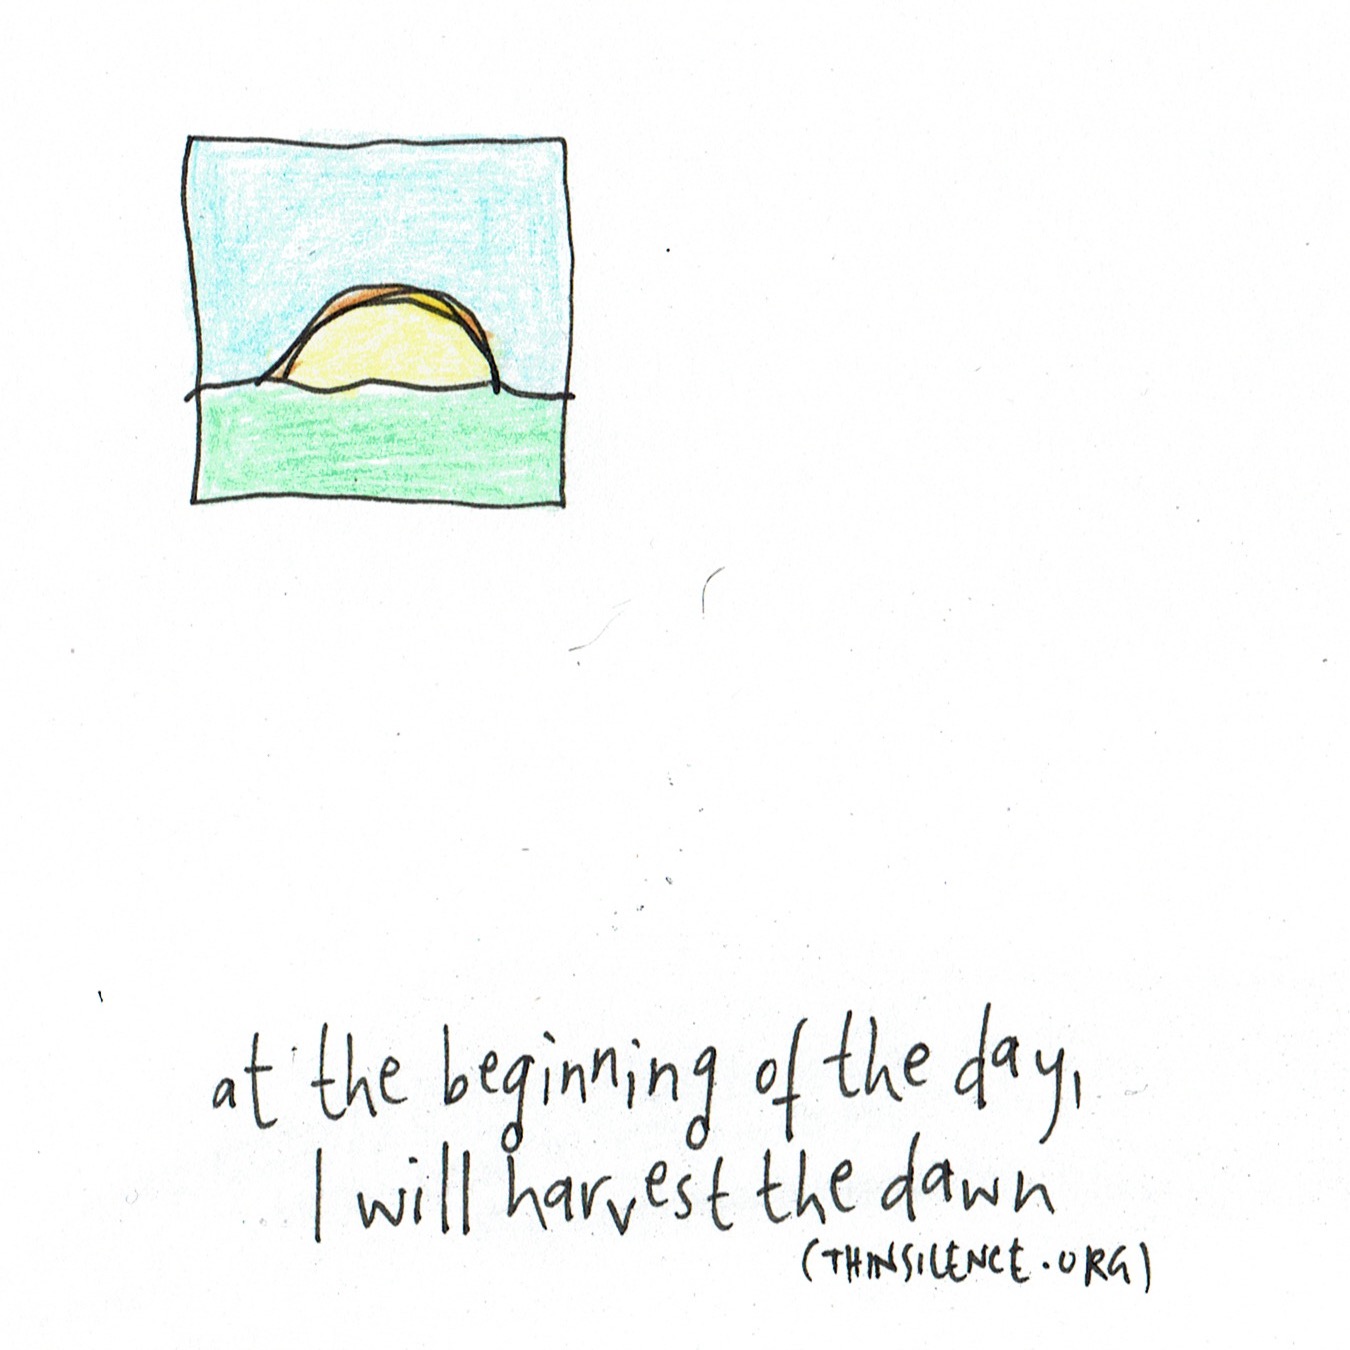 at the beginning of the day,
I will harvest the dawn
(THINSILENCE.ORG)